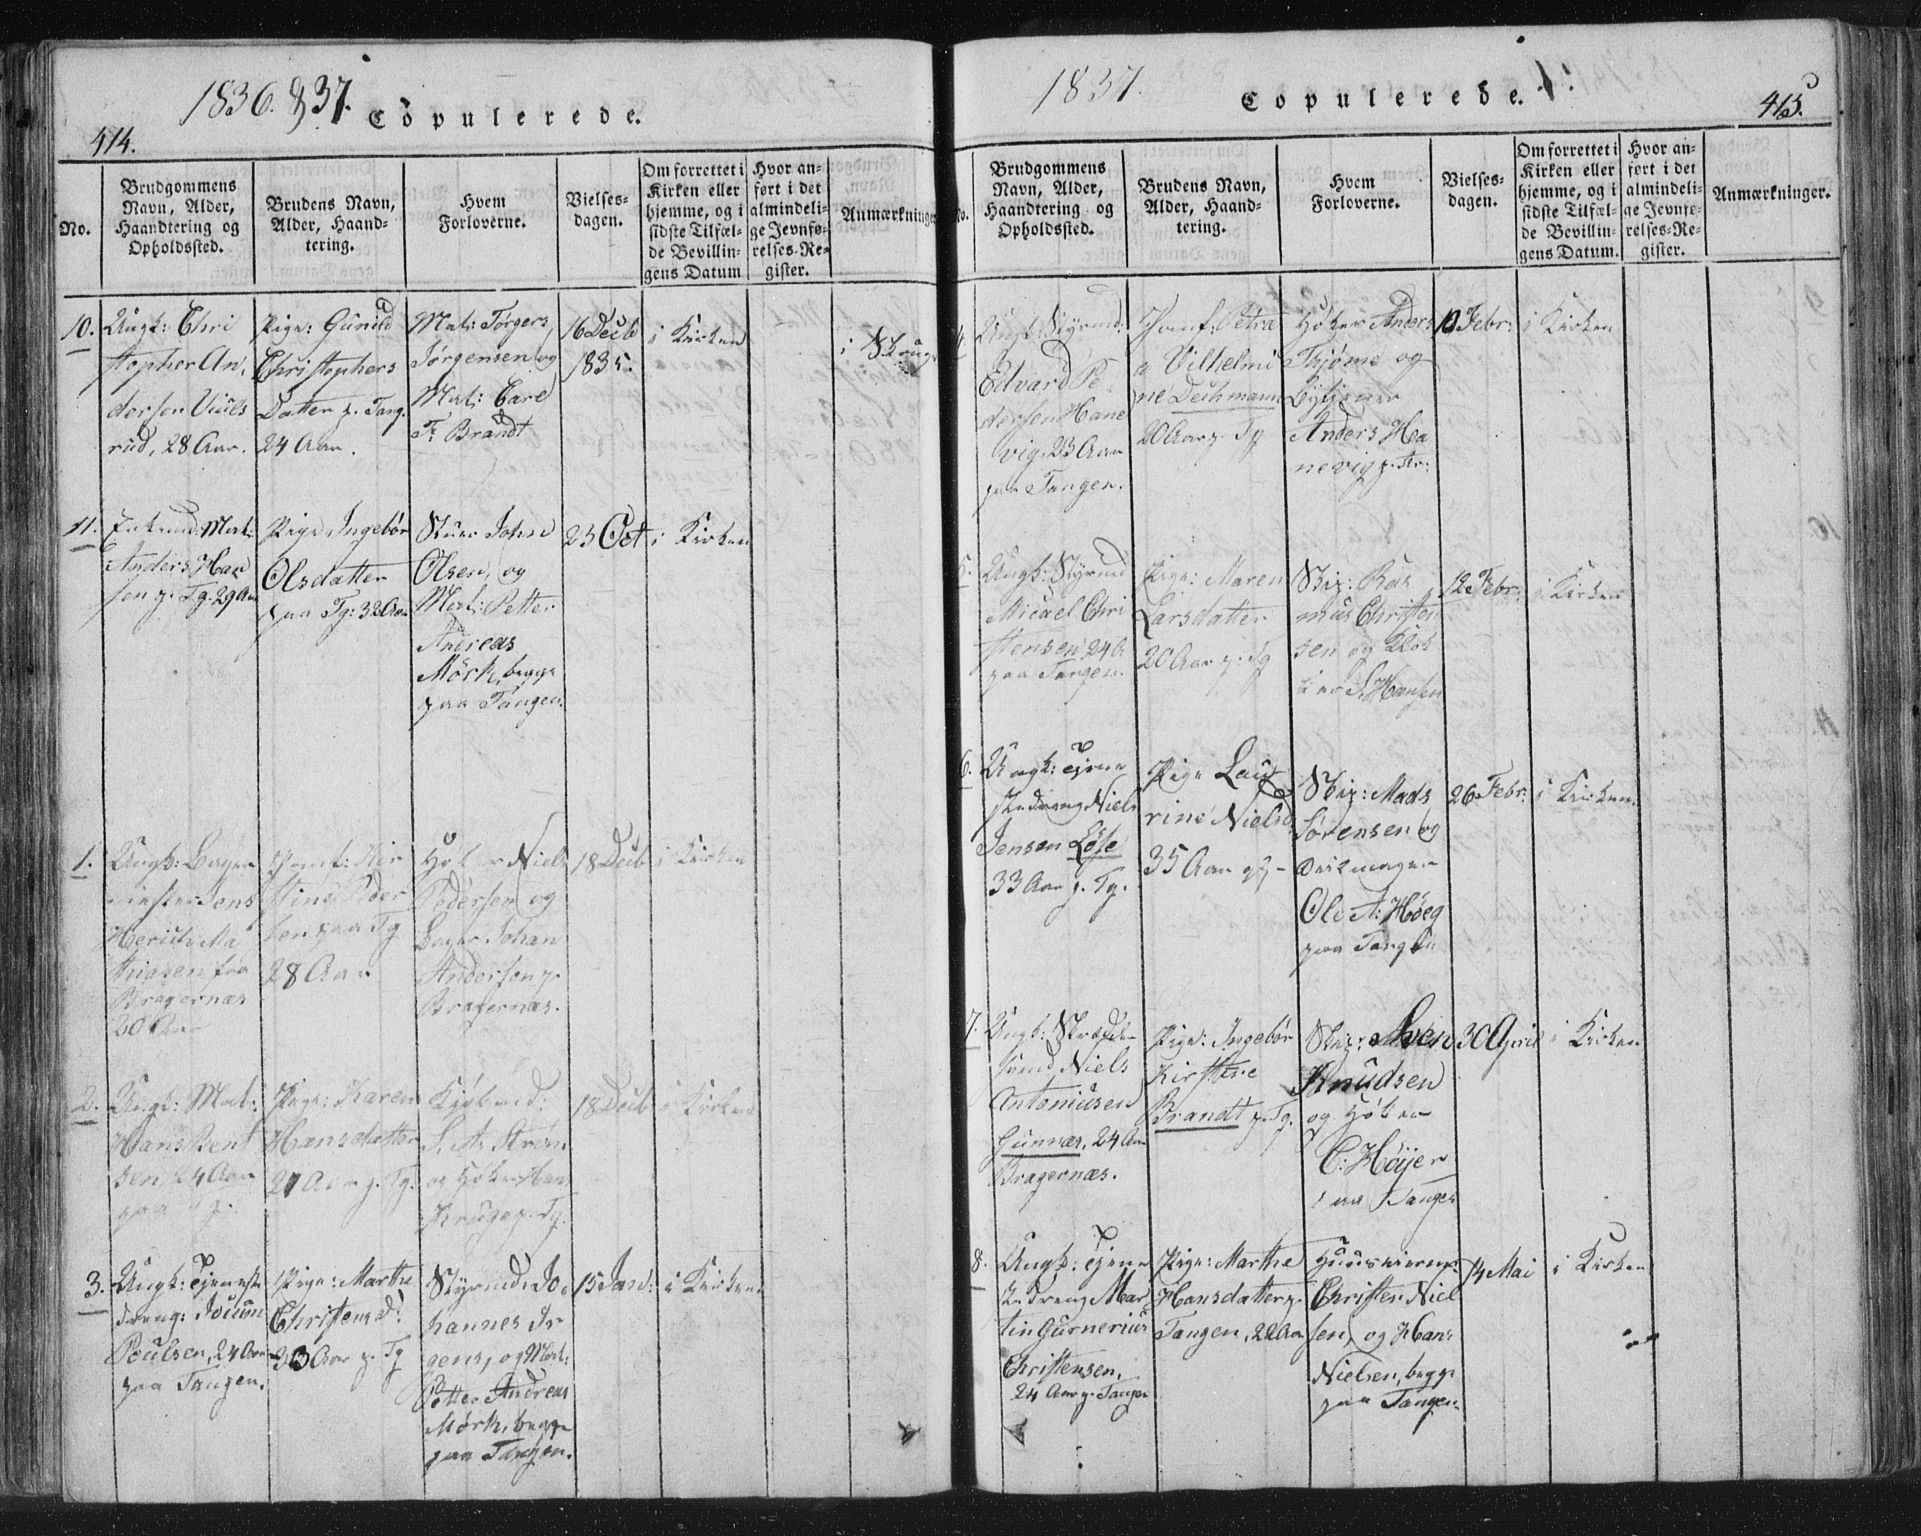 1836. & 37.
Copulerede.
414.
No.
Brudgommens
Navn, Alder,
Haandtering og
Opholdssted.
Brudens Navn,
Alder, Haand-
tering.
Hvem
Forloverne.
Vielses-
dagen.
Om forrettet i
Kirken eller
hjemme, og i
sidste Tilfæl-
de Bevillin-
gens Datum
Hvor an-
ført i det
almindeli-
ge Jevnfø-
relses-Re-
gister.
Anmærkninger
10.
Ungk: Chri
stopher An,
dersen
rud, 28 Aar.
Pige: Gunild
Christophers
Datter p. Tang.
24 Aar.
Mat: Törgers
Jörgensen og
Mat: Carl
Fr. Brandt
16 Decb
1835.
i Kirken
11.
Enkemd: Mat:
Anders Han
sen p. Tg. 29 Aar
Pige Ingebör
Olsdatter
paa Tg: 32 Aar
Stuer Johan
Olsen, og
Mat: Petter
Andreas
Mörk, begge
paa Tangen.
23 Oct
i Kirken
1.
Ungk: Bager
mester Jens
Henrich Ma
thiasen fra
Bragernæs
30 Aar
Jomf: Kir
stine Peder
sen paa Tg
28 Aar
Höker Niels
Pedersen og
Bager Johan
Andersen p.
Bragernæs.
18 Decb
i Kirken
2.
Ungk: Mat:
Hans Bent
sen 24 Aar
paa Tg.
Pige: Karen
Hansdatter
21 Aar p. Tg.
Kjöbmd:
S. A. Ström
og Höker Han
Kruge p. Tg.
18 Decb
i Kirken
3.
Ungk: Tjeneste
dreng: Jocum
Poulsen, 24 Aar
paa Tangen.
Pige: Marthe
Christensd:
30 Aar p. Tg
Styrmd: Jo,
hannes Jr
gens, og Mat:
Petter Andreas
Mörk, begge
paa Tangen.
15 Jan:
i Kirken
1837.
Copulerede.
415.
No.
Brudgommens
Navn, Alder,
Haandtering og
Opholdssted.
Brudens Navn,
Alder, Haand-
tering.
Hvem
Forloverne.
Vielses-
dagen.
Om forrettet i
Kirken eller
hjemme, og i
sidste Tilfæl-
de Bevillin-
gens Datum.
Hvor an-
ført i det
almindeli-
ge Jevnfø-
relses-Re-
gister.
Anmærkninger.
4.
Ungk: Styrmd:
Edvard Pe,
dersen Hane
vig, 23 Aar
paa Tangen.
Jomf: Petra
a Vilhelmi
ne Deichmann
20 Aar p. Tg
Höker Anders
Thjöme og
Bytjener
Anders Ha
nevig p. Str:
10 Febr:
i Kirken
5.
Ungk: Styrmd
Micael Chri
stensen 24 A
paa Tangen.
Pige: Maren
Larsdatter
20 Aar p: Tg
Skip: Ras
mus Christen
sen og
S. Hansen
12 Febr:
i Kirken
6.
Ungk: Tjene
stedreng Niels
Jensen Löfe
33 Aar p. Tg.
Pige Lau
rine Nielsd.
35 Aar
Skip: Mads
Sörensen og
Ole A: Höeg
paa Tangen
26 Febr:
i Kirken
7.
Ungk: Skrædder
svend Niels
Antoniusen
Gunnær, 24 Aar
Bragernæs.
Pige: Ingebör
Kirstine
Brandt p. Tg.
Skip: Sven
Knudsen
og Höker
C: Höijer
paa Tangen
30 April
i Kirken
8.
Ungk: Tjene
ste dreng Mar
tin Gurnerius
Christensen,
24 Aar p. Tangen
Pige: Marthe
Hansdatter p.
Tangen, 22 Aar
Huuseierne
Christen Niel
sen, og Hans
Nielsen, begge
paa Tangen.
14 Mai
i Kirken